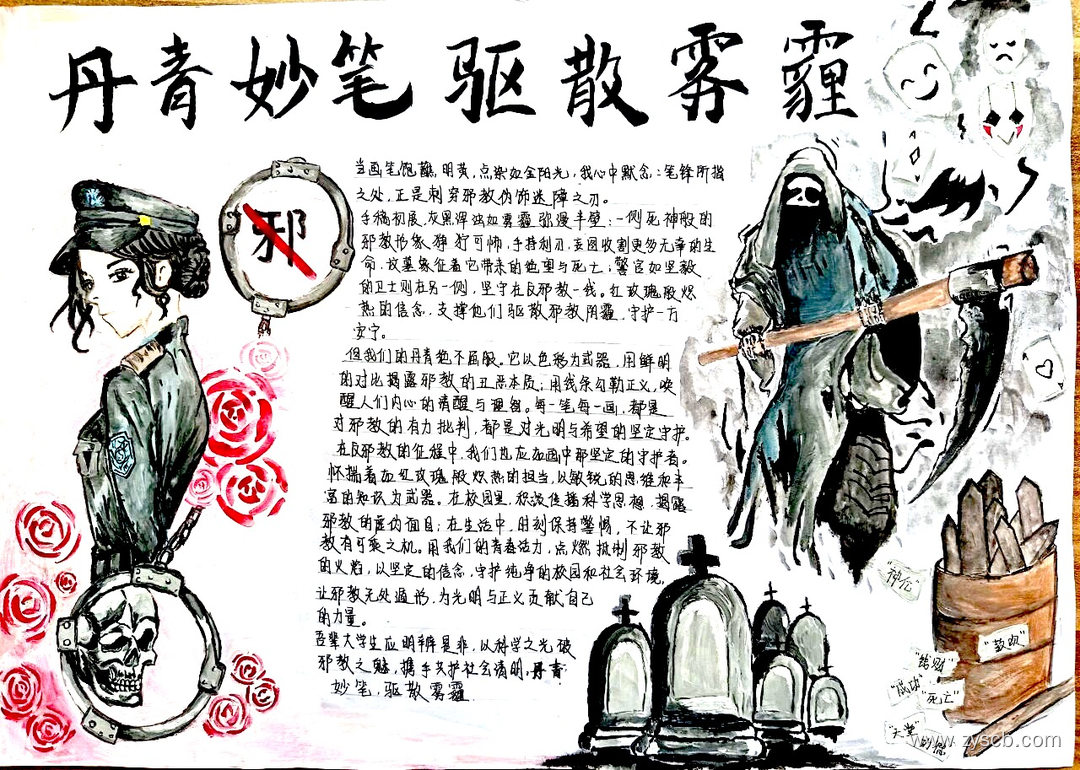 丹青妙笔驱散雾霾
邪
当画笔饱蘸明黄,点染如金阳光,我心中默念:笔锋所指
之处,正是刺穿邪教伪饰迷障之刃。
手稿初展,灰黑浑浊如雾霾弥漫半壁:一侧死神般的
邪教形象狰狞可怖,手持利刃,妄图收割更多无辜的生
命,坟墓象征着它带来的绝望与死亡;警官如坚毅
的卫士则在另一侧,坚守在反邪教一线。红玫瑰般炽
热的信念,支撑他们驱散邪教阴霾,守护一方
安宁。
但我们的丹青绝不屈服。它以色彩为武器,用鲜明
的对比揭露邪教的丑恶本质;用线条勾勒正义,唤
醒人们内心的清醒与理智。每一笔每一画,都是
对邪教的有力批判,都是对光明与希望的坚定守护。
在反邪教的征程中,我们也应如画中那坚定的守护者。
怀揣着如红玫瑰般炽热的担当,以敏锐的思维和丰
富的知识为武器。在校园里,积极传播科学思想,揭露
邪教的虚伪面目;在生活中,时刻保持警惕,不让邪
教有可乘之机。用我们的青春活力,点燃抵制邪教
的火焰,以坚定的信念,守护纯净的校园和社会环境,
让邪教无处遁形,为光明与正义贡献自己
的力量。
吾辈大学生应明辨是非,以科学之光破
邪教之魅,携手共护社会清明,丹青
妙笔,驱散雾霾
"神化"
"敛财"
"成功"
"死亡"
"天堂"
www.zyscb.com